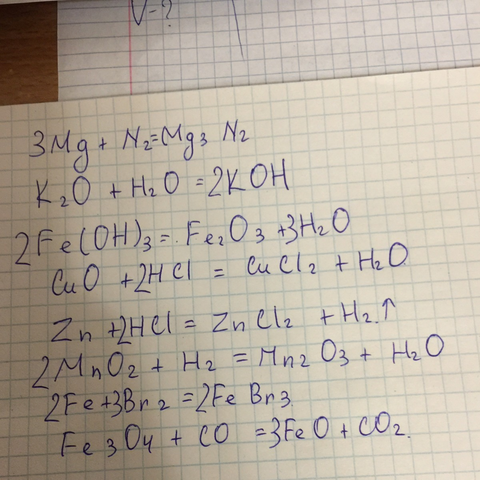 V-?
3Mg + N₂=Mg₃ N₂
K₂O + H₂O = 2KOH
2Fe(OH)₃ = Fe₂O₃ + 3H₂O
CuO + 2HCl = CuCl₂ + H₂O
Zn + 2HCl = ZnCl₂ + H₂↑
2MnO₂ + H₂ = Mn₂O₃ + H₂O
2Fe + 3Br₂ = 2FeBr₃
Fe₃O₄ + CO = 3FeO + CO₂.